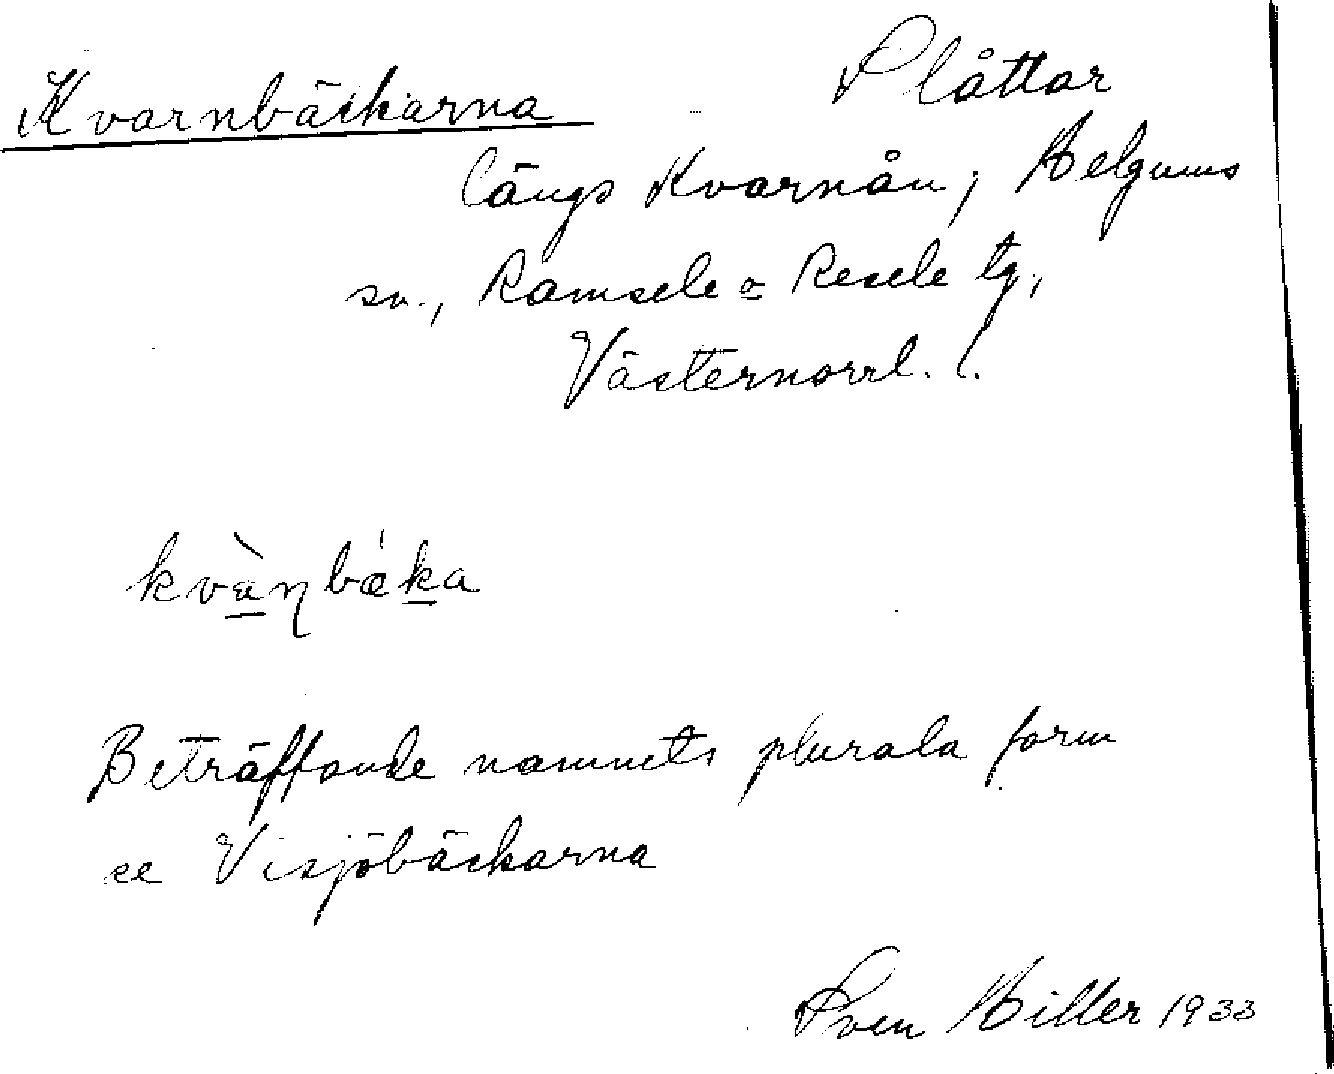 Kvarnbäckarna Slåttar
längs Kvarnån, Helgums
sn., Ramsele o Resele tg,
Västernorrl. l.
kvànbǽka
Beträffande namnets plurala form
se Visjöbäckarna
Sven Hiller 1933